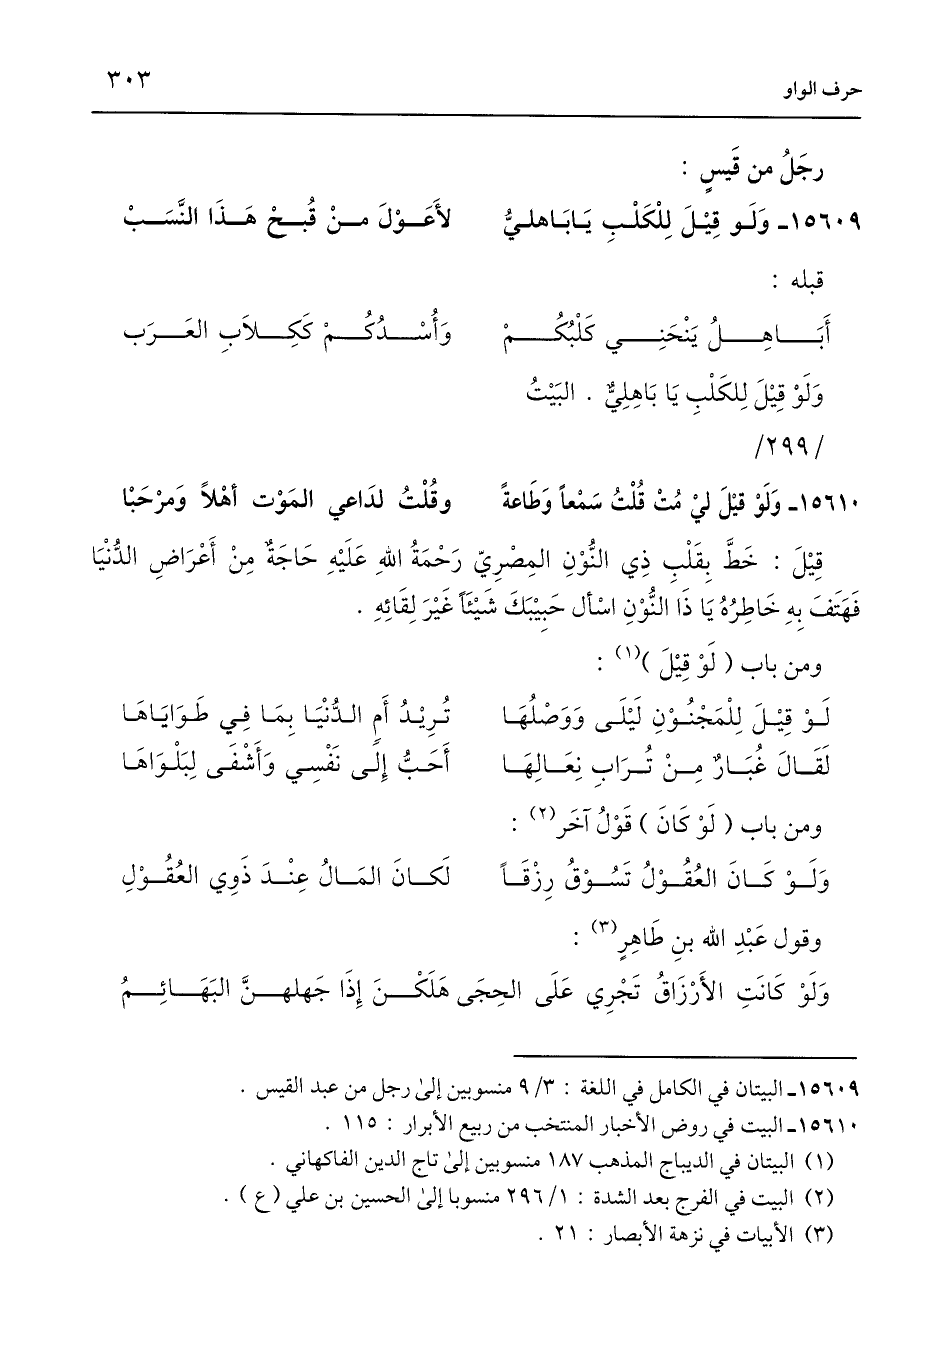 حرف الواو ٣٠٣
رجَلُ من قَيسٍ :
١٥٦٠٩ـ وَلَو قِيْلَ لِلْكَلْبِ يَابَاهليُّ لأَعْوَلَ مِنْ قُبحْ هَذَا النَّسَبْ
قبله :
أَبَاهِلُ يَنْحَنِي كَلْبُكُمْ وَأُسْدُكُمْ كَكِلاَبِ العَرَب
وَلَوْ قِيْلَ لِلكَلْبِ يَا بَاهِلِيٌّ . البَيْتُ
/٢٩٩/
١٥٦١٠ـ وَلَوْ قيْلَ ليْ مُتْ قُلْتُ سَمْعاً وَطَاعةً وقُلْتُ لدَاعي المَوْت أهْلاً وَمرْحَبْا
قِيْلَ : خَطَّ بِقَلْبِ ذِي النُّوْنِ المِصْرِيّ رَحْمَةُ اللهِ عَلَيْهِ حَاجَةٌ مِنْ أَعْرَاضِ الدُّنْيَا
فَهَتَفَ بِهِ خَاطِرُهُ يَا ذَا النُّوْنِ اسْأل حَبِيْبَكَ شَيْئاً غَيْرَ لِقَائِهِ .
ومن باب ( لَوْ قِيْلَ )(١) :
لَوْ قِيْلَ لِلْمَجْنُوْنِ لَيْلَى وَوَصْلُهَا تُرِيْدُ أَمِ الدُّنْيَا بِمَا فِي طَوَايَاهَا
لَقَالَ غُبَارٌ مِنْ تُرَابِ نِعَالِهَا أَحَبُّ إِلَى نَفْسِي وَأَشْفَى لِبَلْوَاهَا
ومن باب ( لَوْ كَانَ ) قَوْلُ آخَر(٢) :
وَلَوْ كَانَ العُقُوْلُ تَسُوْقُ رِزْقَاً لَكَانَ المَالُ عِنْدَ ذَوِي العُقُوْلِ
وقول عَبْدِ الله بنِ طَاهِرٍ(٣) :
وَلَوْ كَانَتِ الأَرْزَاقُ تَجْرِي عَلَى الحِجَى هَلَكْنَ إِذَا جَهلهنَّ البَهَائِمُ
١٥٦٠٩ـ البيتان في الكامل في اللغة : ٣/ ٩ منسوبين إلىٰ رجل من عبد القيس .
١٥٦١٠ـ البيت في روض الأخبار المنتخب من ربيع الأبرار : ١١٥ .
(١) البيتان في الديباج المذهب ١٨٧ منسوبين إلىٰ تاج الدين الفاكهاني .
(٢) البيت في الفرج بعد الشدة : ١/ ٢٩٦ منسوبا إلىٰ الحسين بن علي ( ع ) .
(٣) الأبيات في نزهة الأبصار : ٢١ .